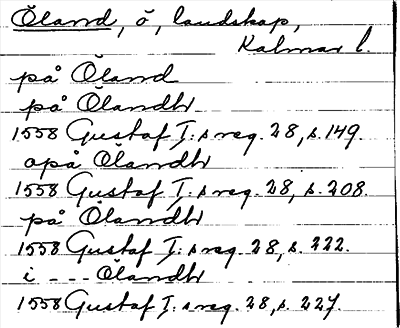 Öland, ö, landskap,
Kalmar l.
på Öland
på Ölandh
1558 Gustaf I:s reg. 28, s. 149.
opå Ölandh
1558 Gustaf I:s reg. 28, s. 208.
på Ölandh
1558 Gustaf I:s reg. 28, s. 222.
i --- Ölandh
1558 Gustaf I:s reg. 28, s. 227.